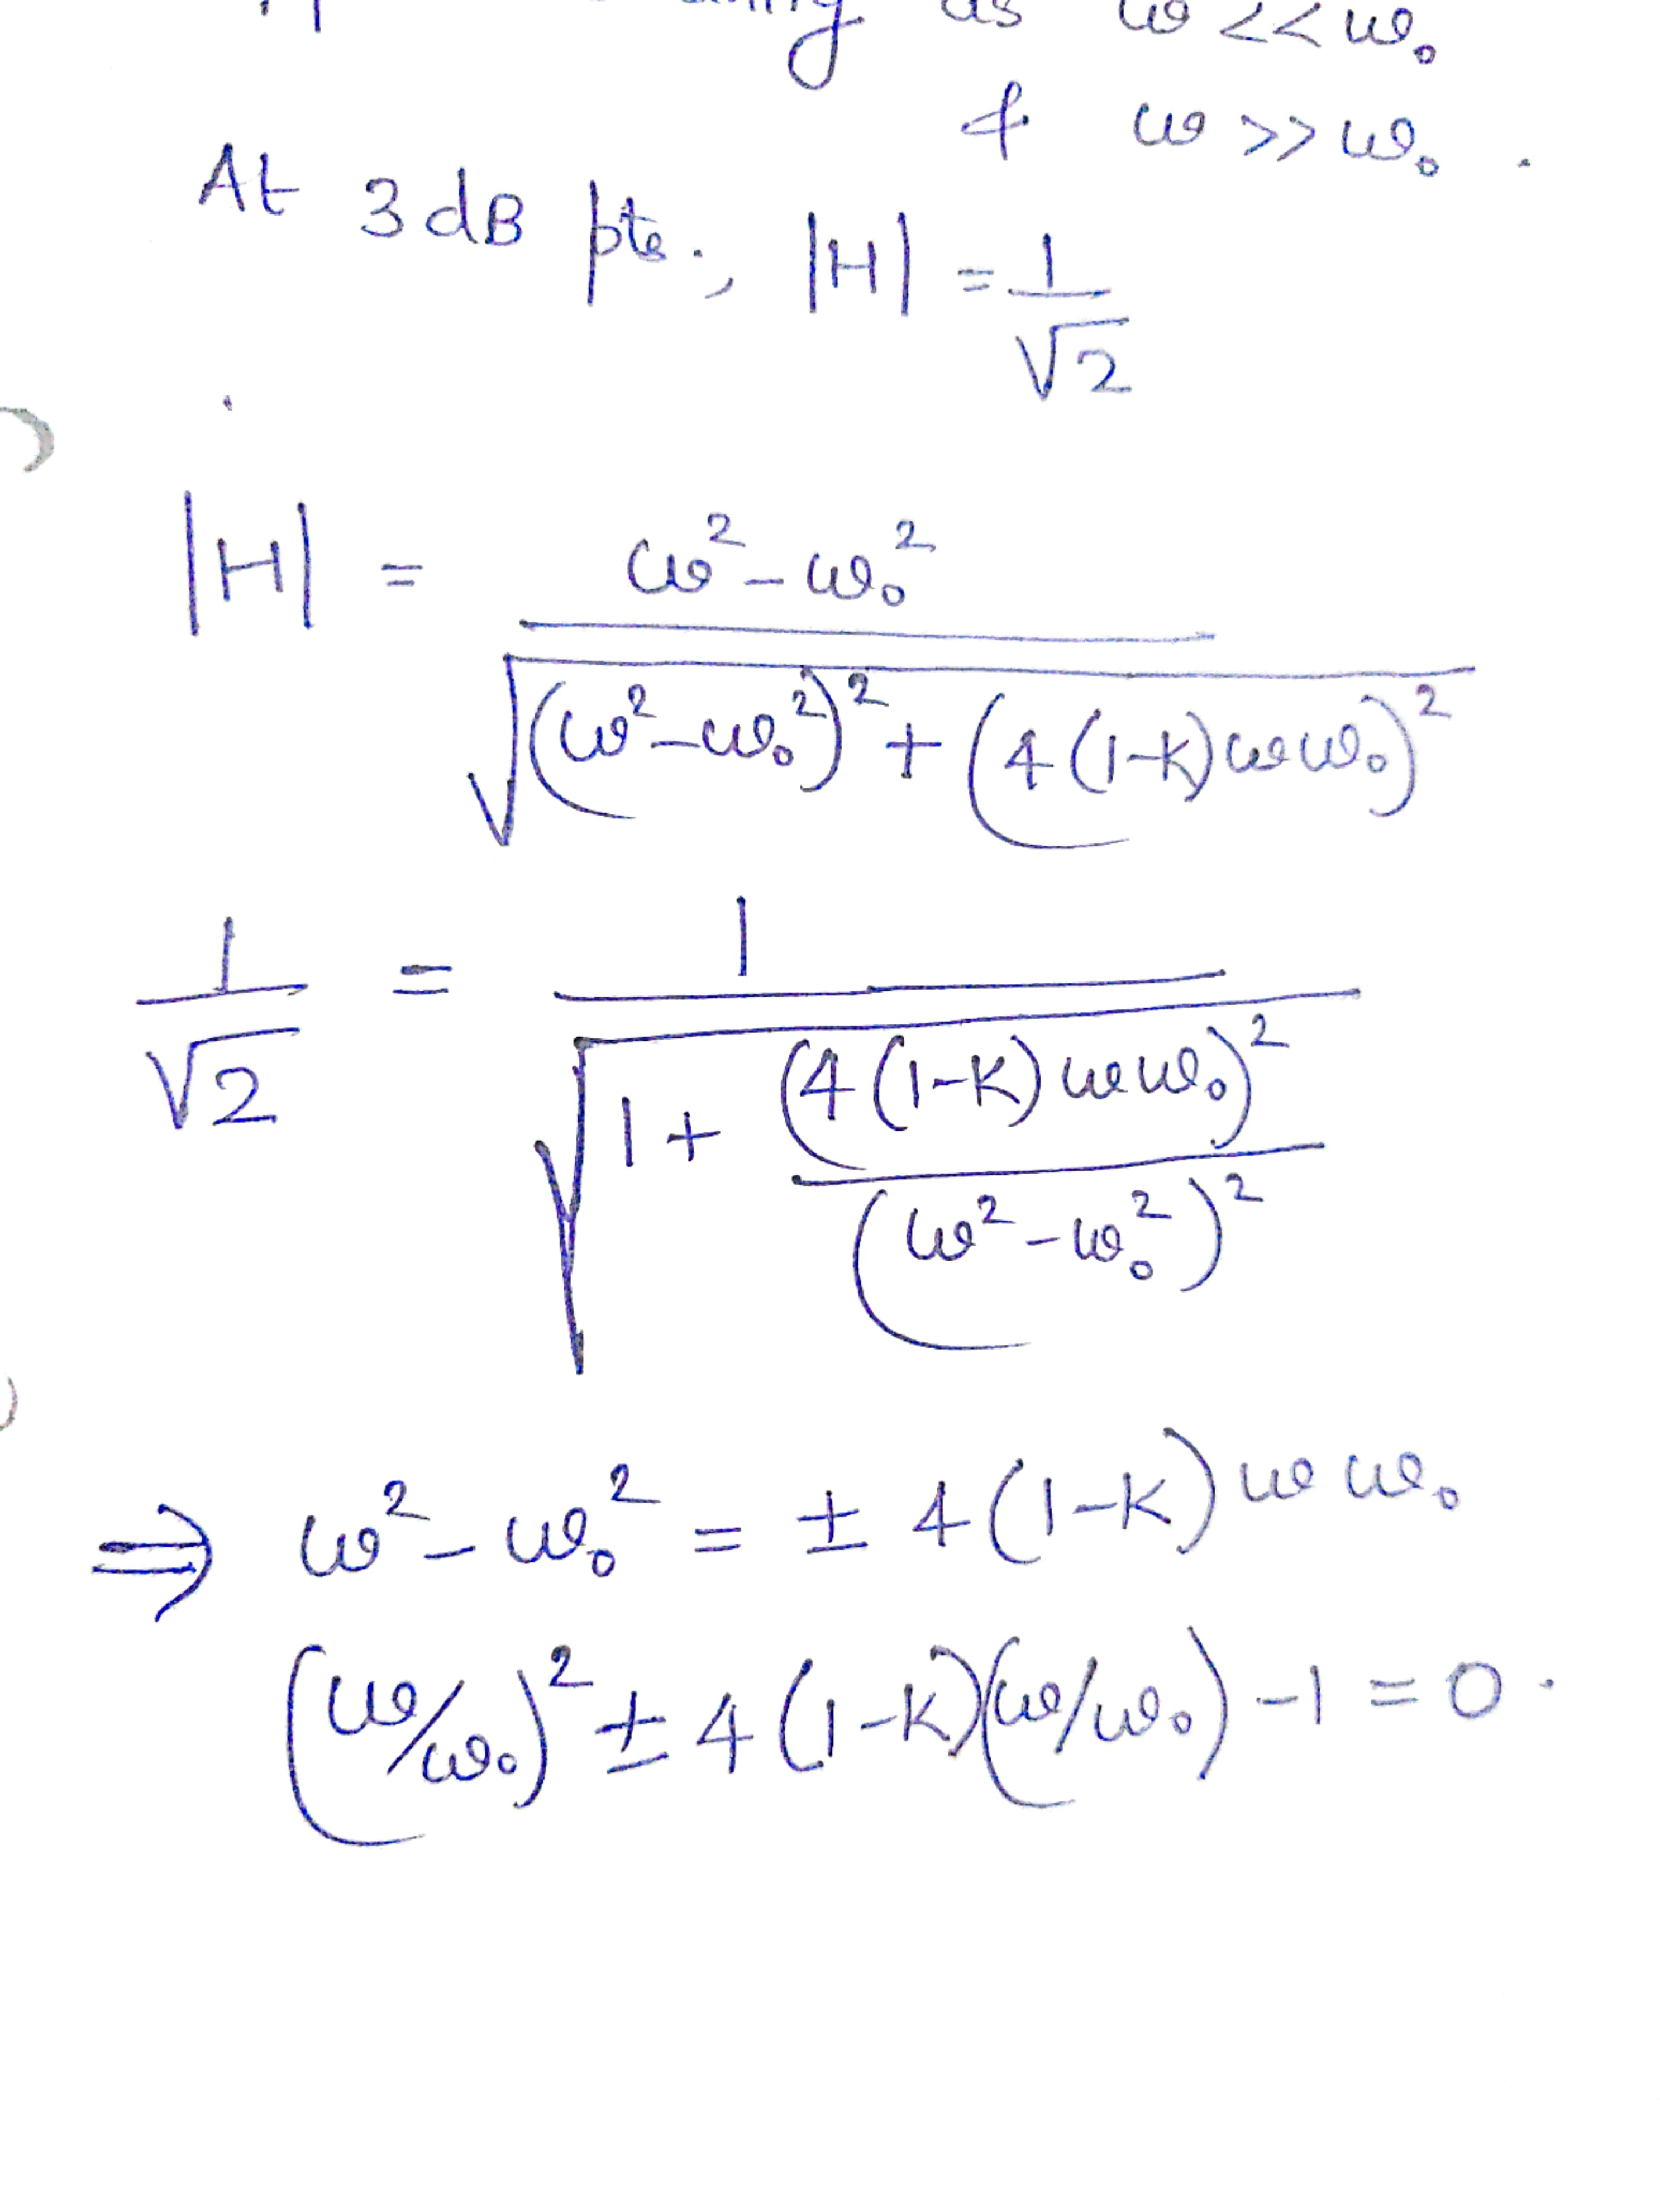 as ω << ω₀
& ω >> ω₀ .
At 3dB pts., |H| = 1/√2
|H| = (ω² - ω₀²) / √((ω² - ω₀²)² + (4(1-K)ωω₀)²)
1/√2 = 1 / √(1 + (4(1-K)ωω₀)² / (ω² - ω₀²)²)
⇒ ω² - ω₀² = ± 4(1-K)ωω₀
(ω/ω₀)² ± 4(1-K)(ω/ω₀) - 1 = 0 .